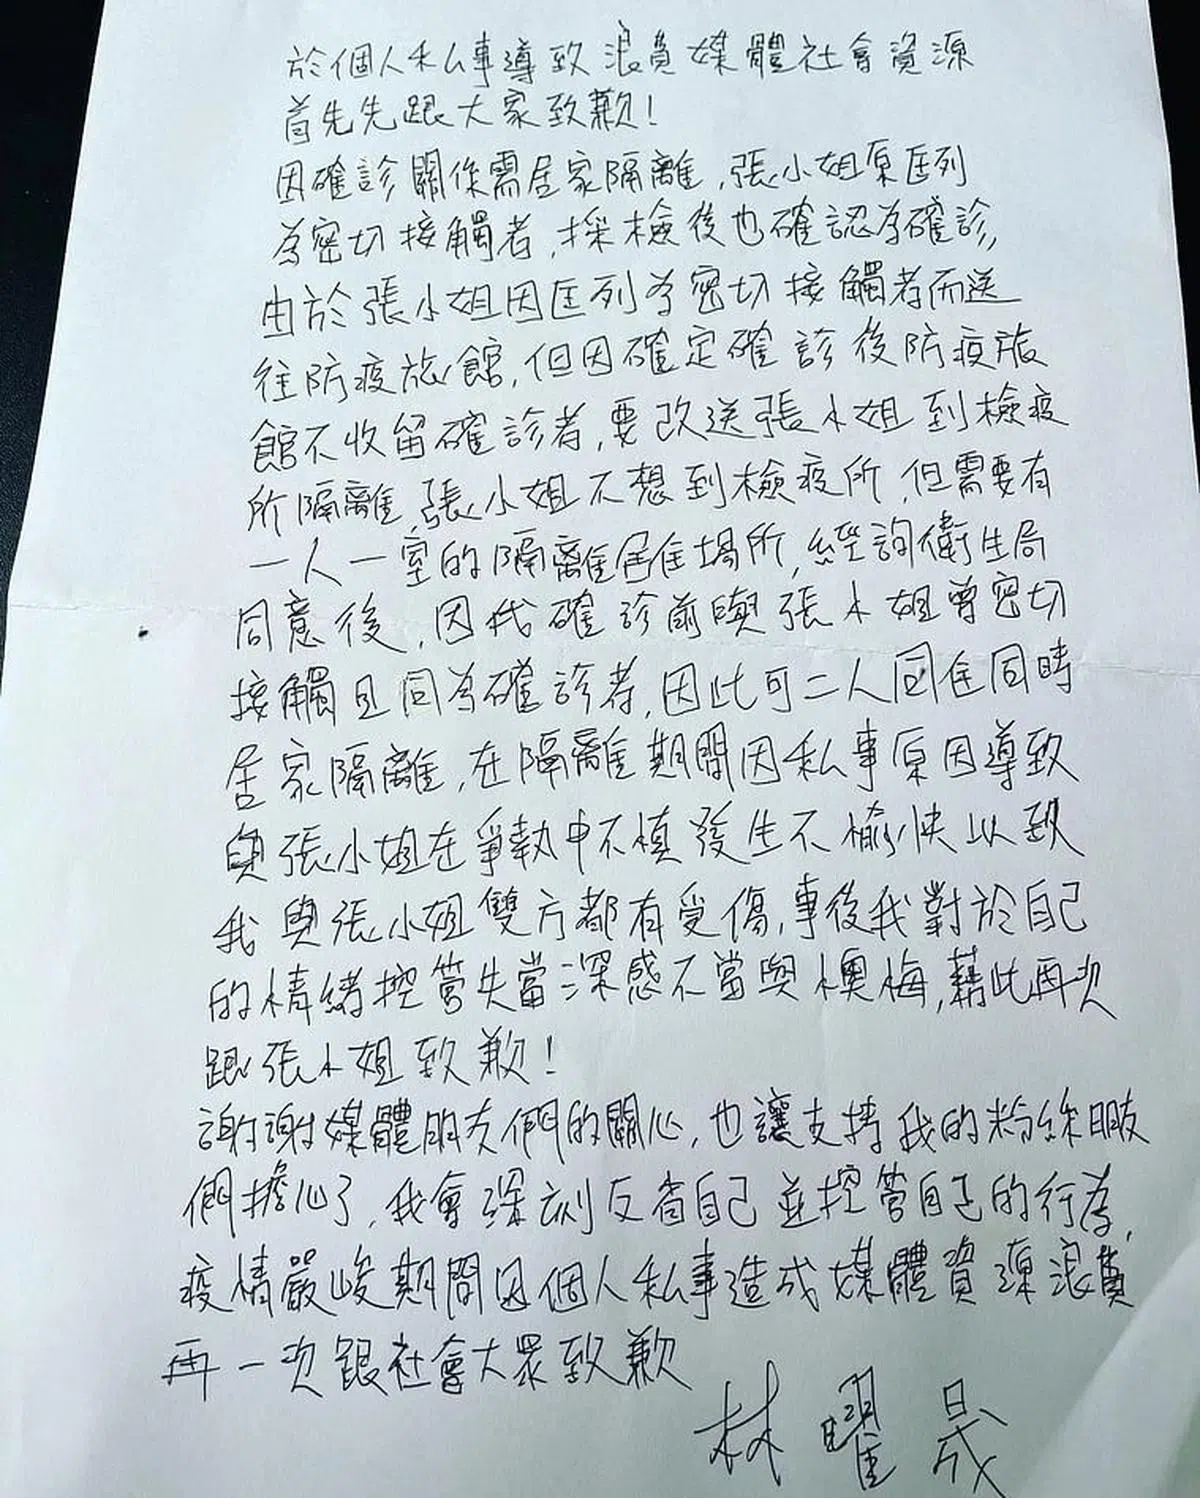 於個人私事導致浪費媒體社會資源
首先先跟大家致歉！
因確診關係需居家隔離，張小姐原匡列
為密切接觸者，採檢後也確認為確診，
由於張小姐因匡列為密切接觸者而送
往防疫旅館，但因確定確診後防疫旅
館不收留確診者，要改送張小姐到檢疫
所隔離，張小姐不想到檢疫所，但需要有
一人一室的隔離居住場所，經詢衛生局
同意後，因我確診前與張小姐曾密切
接觸且同為確診者，因此可二人同住同時
居家隔離，在隔離期間因私事原因導致
與張小姐在爭執中不慎發生不愉快以致
我與張小姐雙方都有受傷，事後我對於自己
的情緒控管失當深感不當與懊悔，藉此再次
跟張小姐致歉！
謝謝媒體朋友們的關心，也讓支持我的粉絲朋友
們擔心了，我會深刻反省自己並控管自己的行為，
疫情嚴峻期間因個人私事造成媒體資源浪費
再一次跟社會大眾致歉
林曜晟